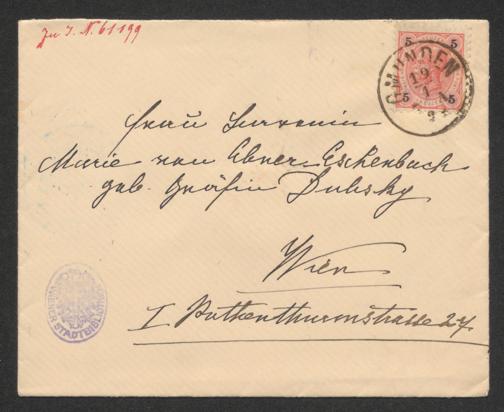 Zu I. N. 61199
5 5
GMUNDEN
19
1
5 5
Frau Baronin
Marie von Ebner-Eschenbach
geb. Gräfin Dubsky
Wien
I Rothenthurmstrasse 27.
WIENER STADTBIBLIOTHEK